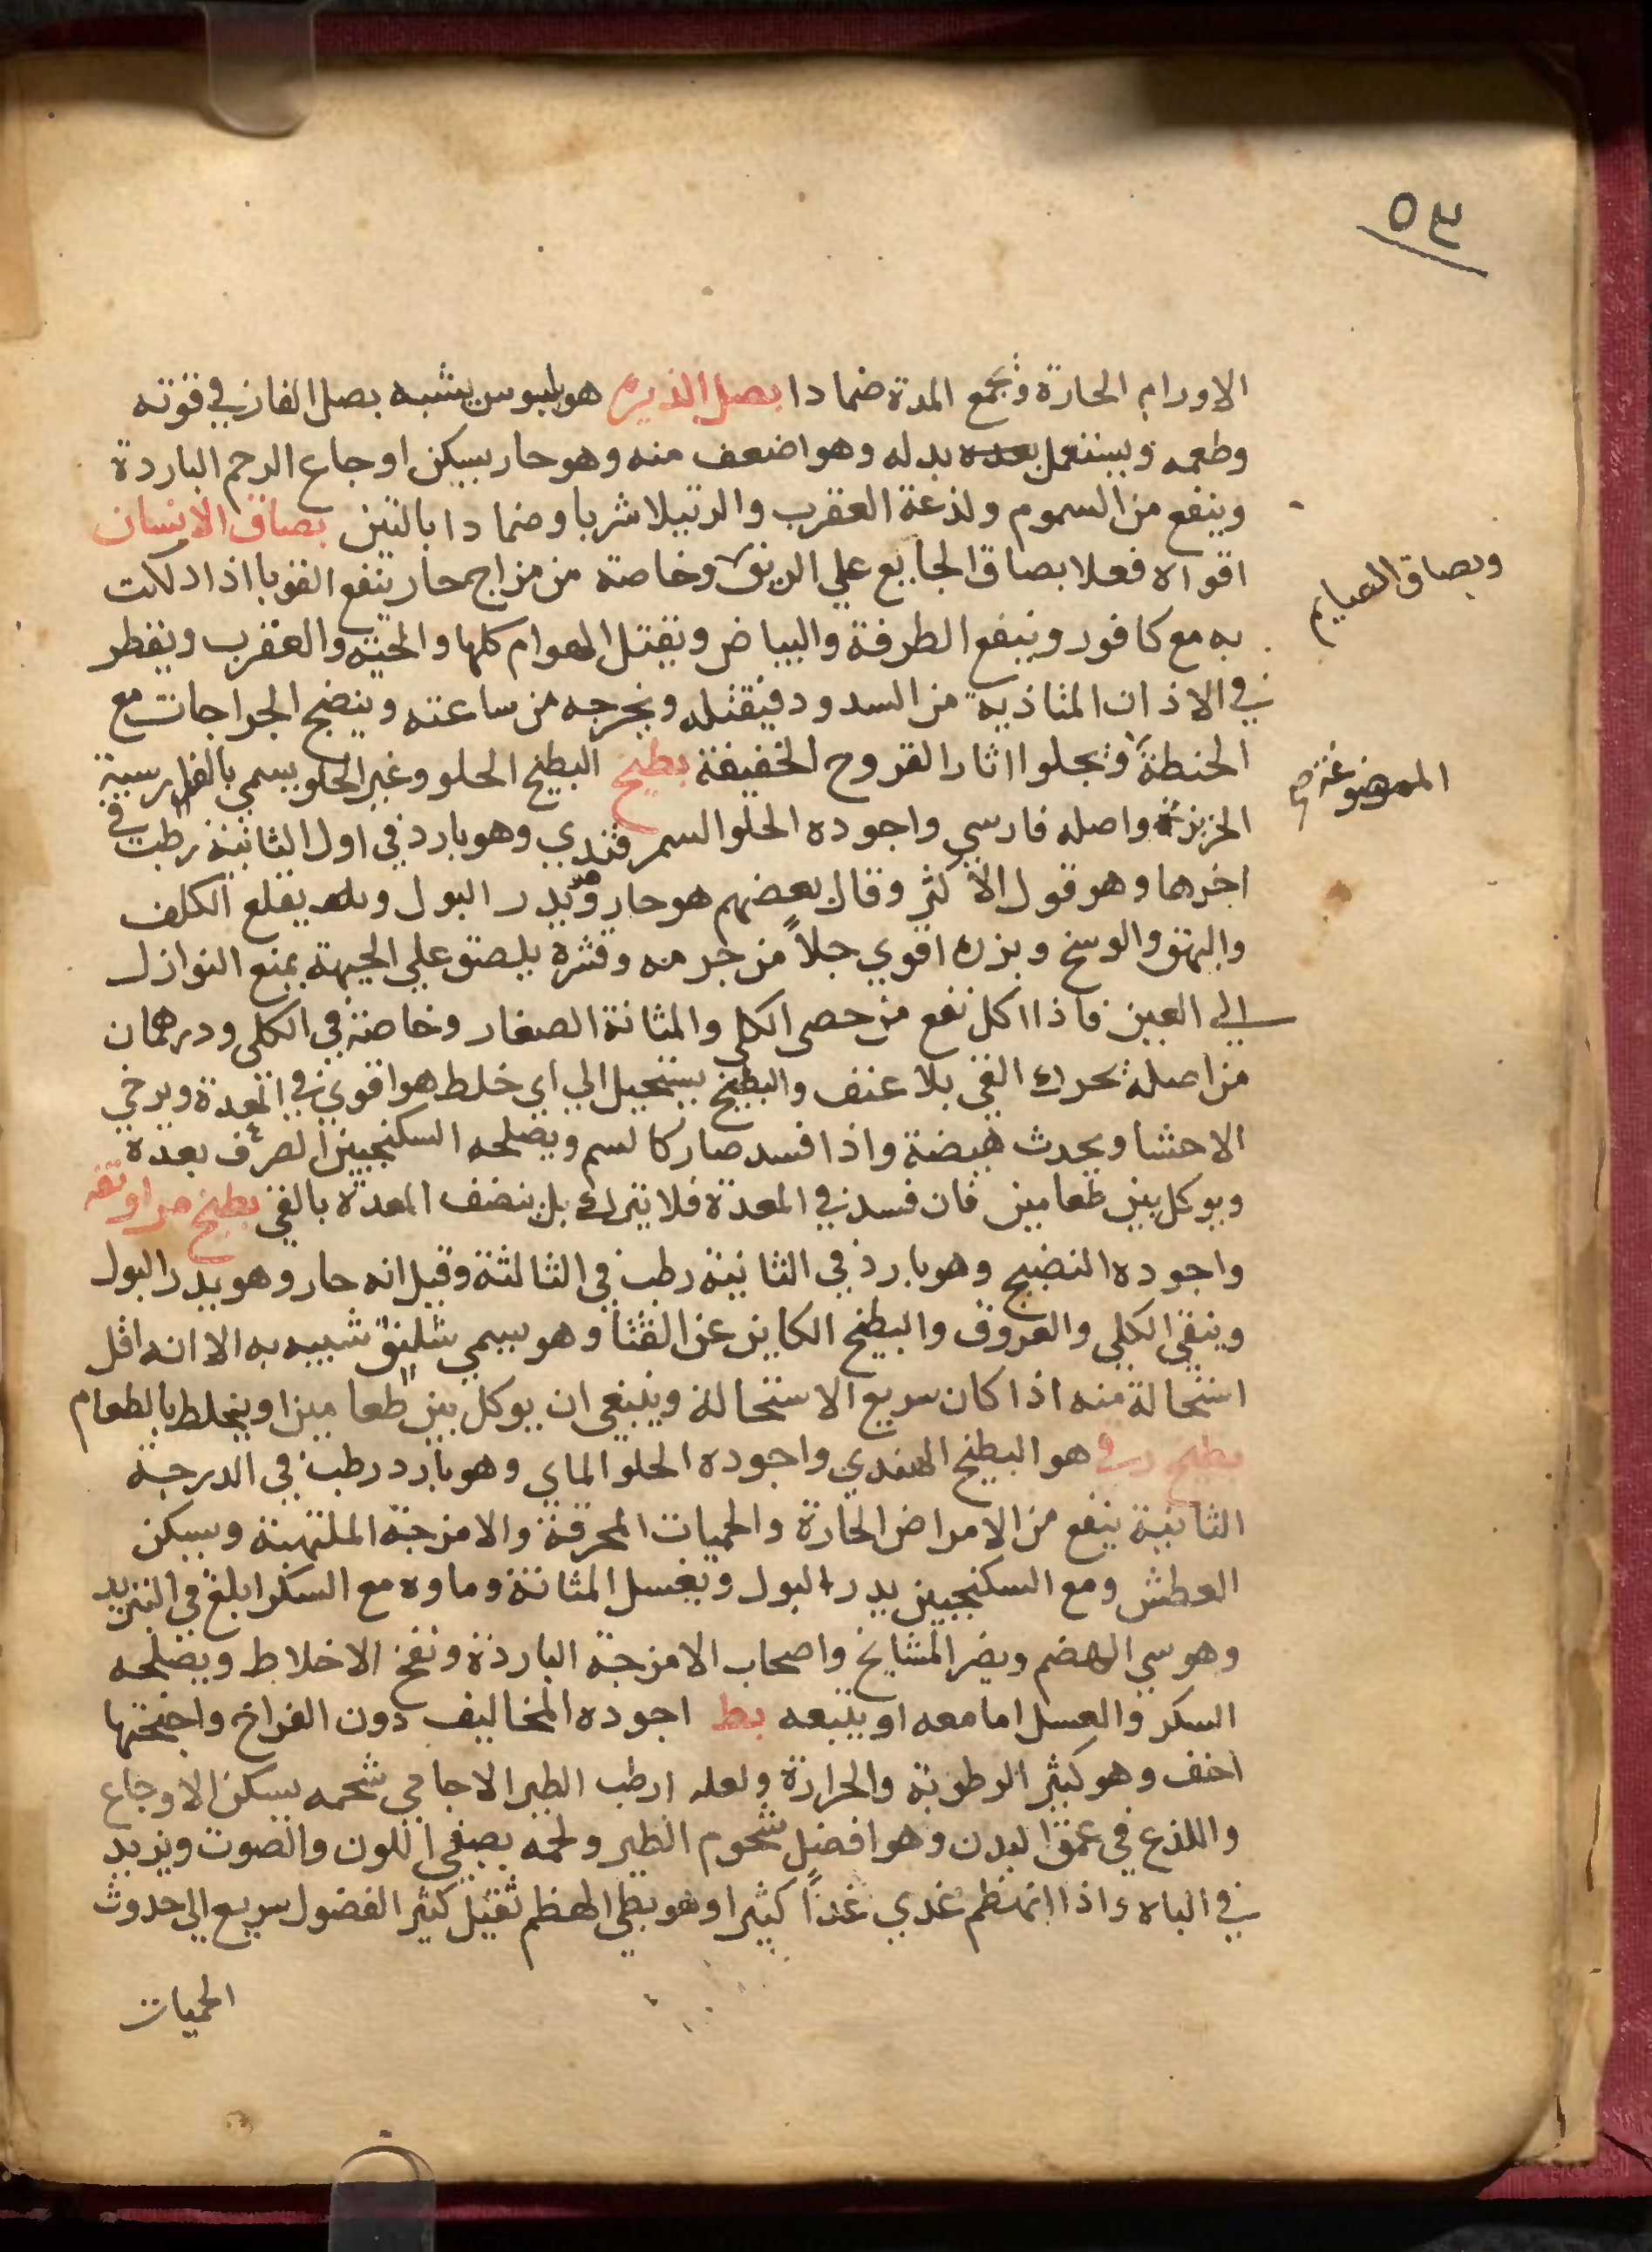 ٥٣
الاورام الحارة وتجمع المدة ضمادا بصل الذيرم هو بلبوس يشبه بصل الفار في قوته
وطعمه ويستعمل بدله وهو اضعف منه وهو حار يسكن اوجاع الرحم الباردة
وينفع من السموم ولذعة العقرب والرتيلا شربا وضمادا بالتين بصاق الانسان
اقواه فعلا بصاق الجايع علي الريق وخاصة من مزاج حار ينفع القوبا اذا دلكت
وبصاق الصيايم
به مع كافور وينفع الطرفة والبياض ويقتل الهوام كلها والحية والعقرب ويقطر
في الاذان المتاذية من السدود فيقتله ويخرجه من ساعته وينضج الجراجات مع
الحنطة ويجلوا اثار القروح الخفيفة بطيخ البطيخ الحلو وغير الحلو يسمي بالفارسية
الممضوغة صح
الخربزة واصله فارسي واجوده الحلو السمرقندي وهو بارد في اول الثانية رطب في
اخرها وهو قول الاكثر وقال بعضهم هو حار ويدر البول يقلع الكلف
والبهق والوسخ وبزره اقوي جلاً من جرمه وقشره يلصق علي الجبهة يمنع النوازل
الي العين فاذا اكل نفع من حصى الكلي والمثانة الصغار وخاصة في الكلي ودرهمان
من اصله يحرك القي بلا عنف والبطيخ يستحيل الي اي خلط هو اقوي في المعدة ويرخي
الاحشا ويحدث هيضة واذا فسد صار كالسم ويصلحه السكنجبين الصرف بعده
ويوكل بين طعامين فان فسد في المعدة فلا يترك بل ينضف المعدة بالقي بطيخ
واجوده النضيج وهو بارد في الثانية رطب في الثالثة وقيل انه حار وهو يدر البول
وينقي الكلي والعروق والبطيخ الكاين عن القثا وهو يسمي شلنق شبيه به الا انه اقل
استحالة منه اذا كان سريع الاستحالة وينبغي ان يوكل بين طعامين او يخلط بالطعام
بطيخ رقي هو البطيخ الهندي واجوده الحلو الماي وهو بارد رطب في الدرجة
الثانية ينفع من الامراض الحارة والحميات المحرقة والامزجة الملتهبة ويسكن
العطش ومع السكنجبين يدر البول ويغسل المثانة وماوه مع السكر ابلغ في التبريد
وهو سي الهضم ويضر المشايخ واصحاب الامزجة الباردة ونفخ الاخلاط ويصلحه
السكر والعسل اما معه او يتبعه بط اجوده المخاليف دون الفراخ واجنحتها
اخف وهو كثير الرطوبة والحرارة ولعله ارطب الطير الاجامي شحمه يسكن الاوجاع
واللذع في عمق البدن وهو افضل شحوم الطير ولحمه يصفي اللون والصوت ويزيد
في الباه واذا انهظم غدي غذاً كثيرا وهو بطي الهظم ثقيل كثير الفضول سريع الي حدوث
الحميات